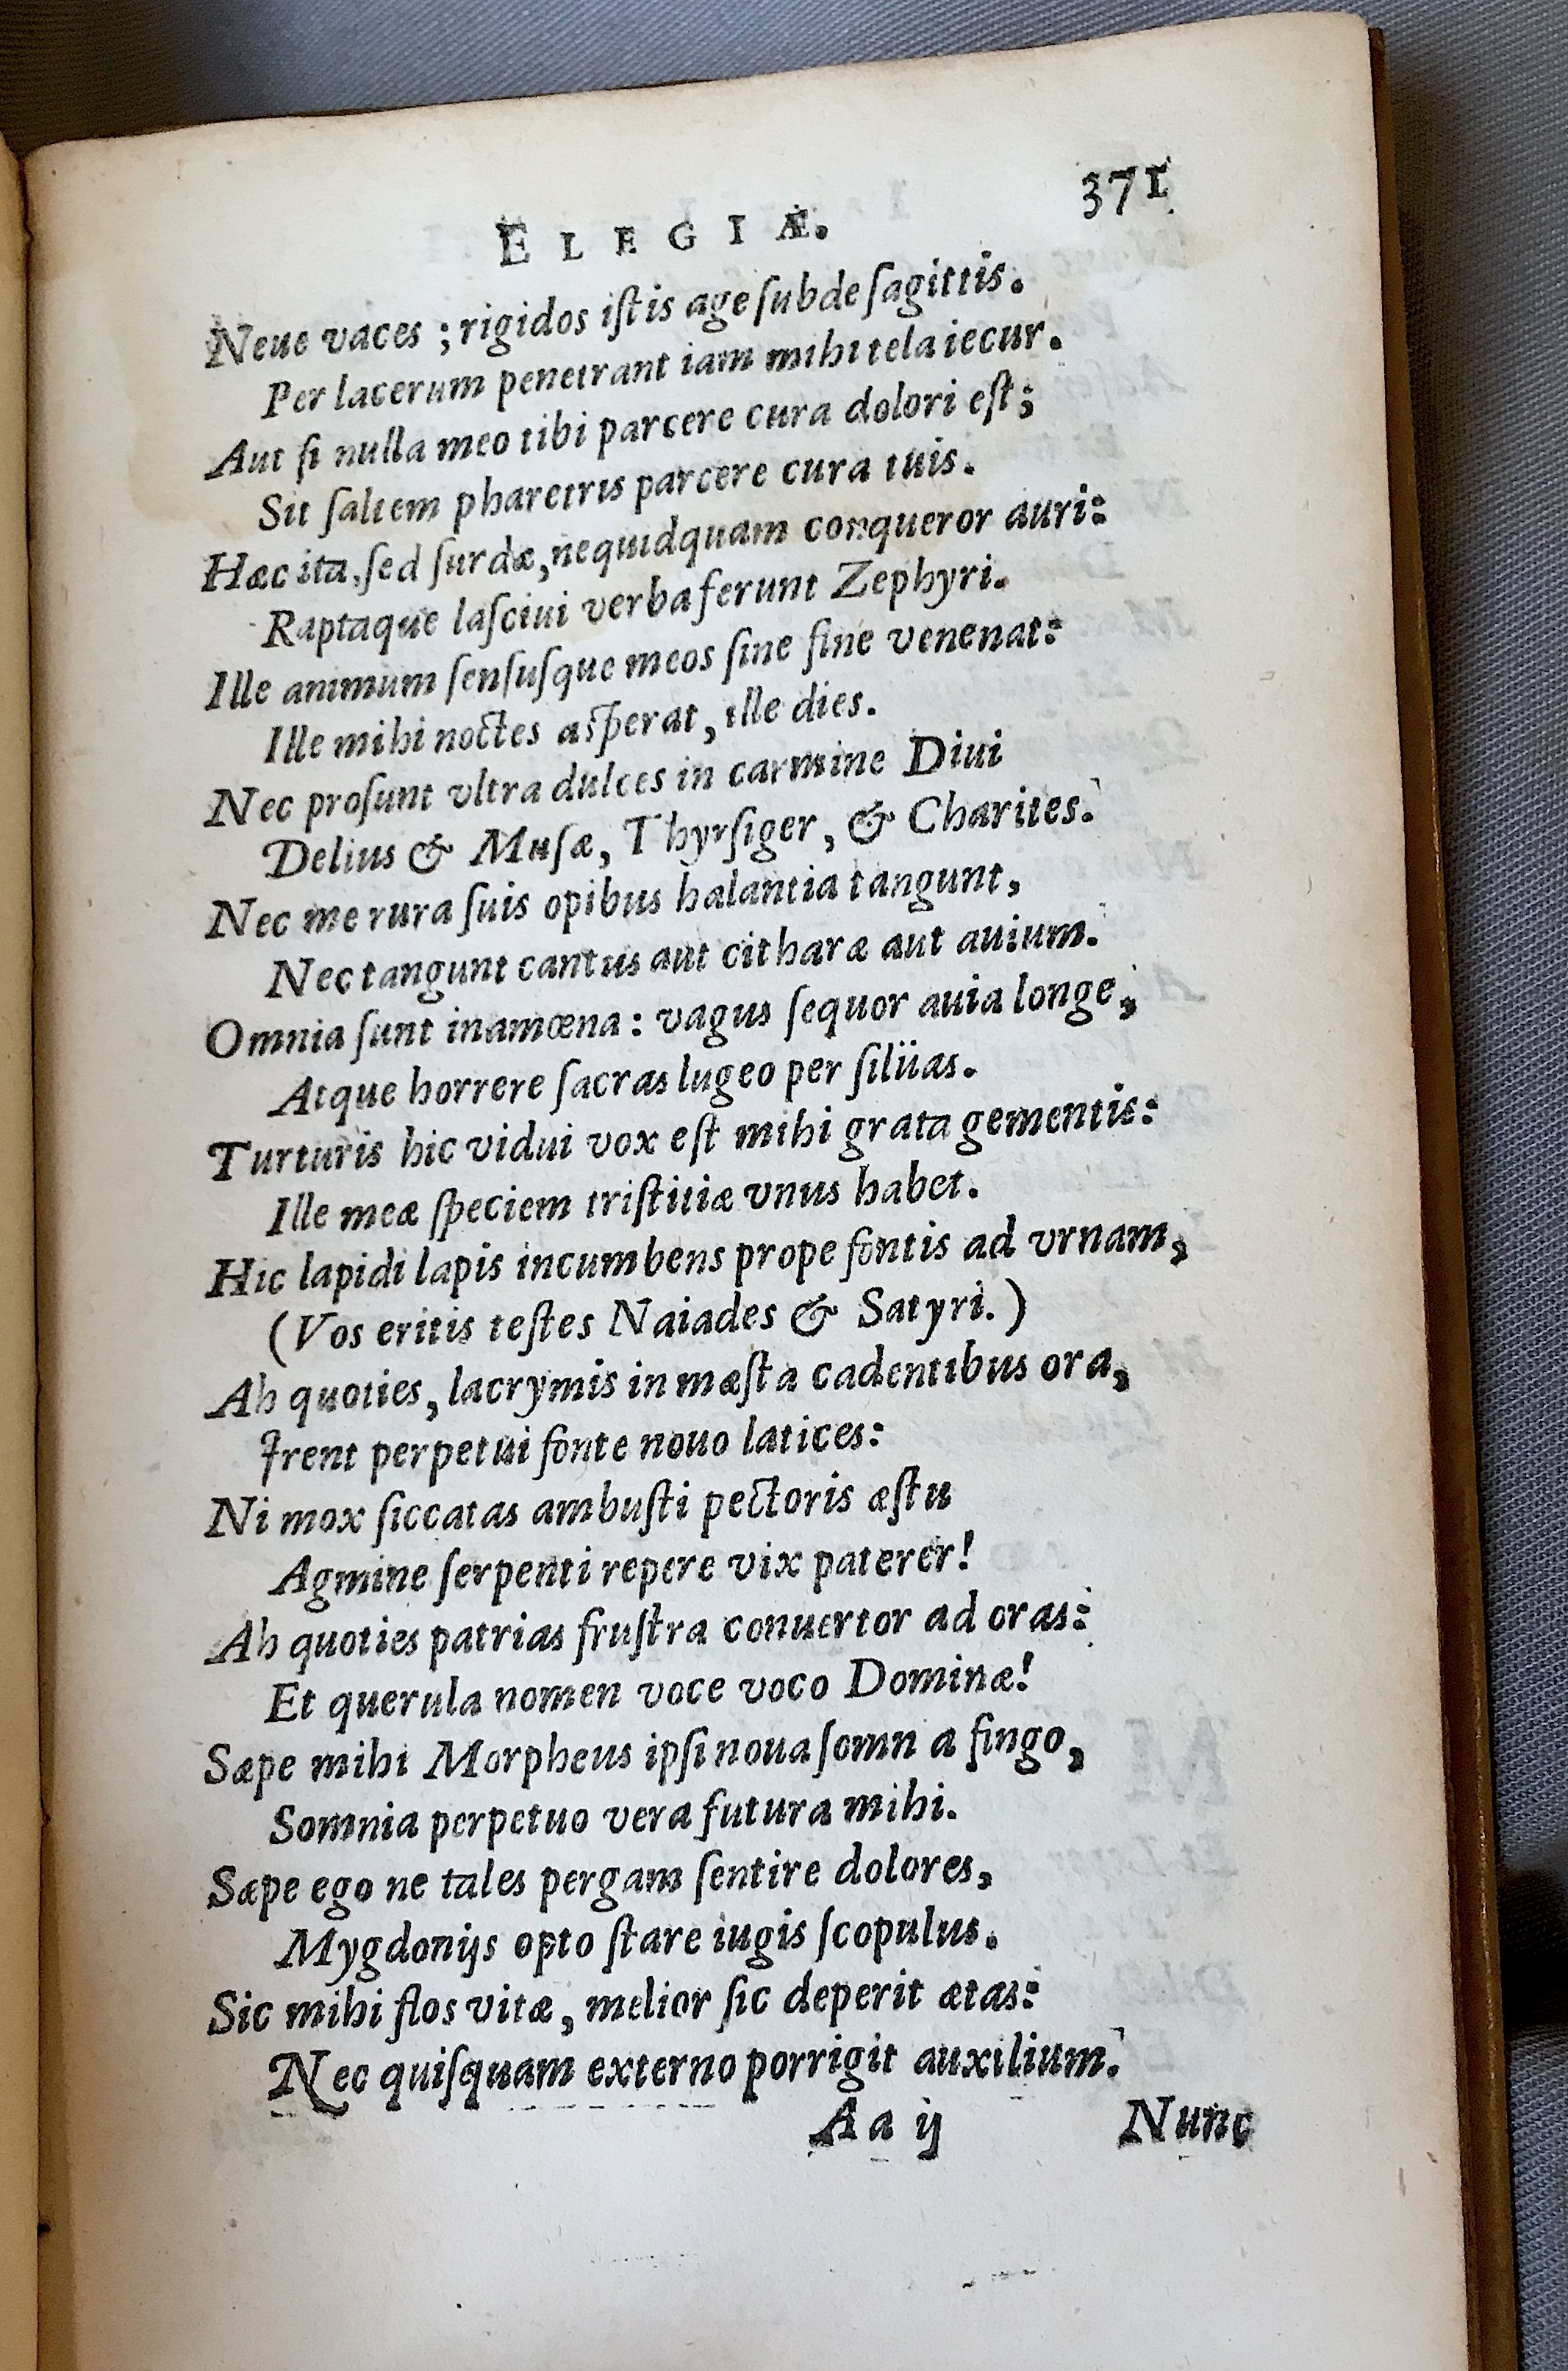 ELEGIÆ. 371
Neue vaces ; rigidos iſtis age ſubde ſagittis.
Per lacerum penetrant iam mihi tela iecur.
Aut ſi nulla meo tibi parcere cura dolori eſt;
Sit ſaltem pharetris parcere cura tuis.
Hæc ita, ſed ſurdæ, nequidquam conqueror auri:
Raptaque laſciui verba ferunt Zephyri.
Ille animum ſenſuſque meos ſine fine venenat:
Ille mihi noctes aſperat, ille dies.
Nec proſunt vltra dulces in carmine Diui
Delius & Muſæ, Thyrſiger, & Charites.
Nec me rura ſuis opibus halantia tangunt,
Nec tangunt cantus aut citharæ aut auium.
Omnia ſunt inamœna : vagus ſequor auia longe,
Atque horrere ſacras lugeo per ſilüas.
Turturis hic vidui vox eſt mihi grata gementis:
Ille meæ ſpeciem triſtitiæ vnus habet.
Hic lapidi lapis incumbens prope fontis ad vrnam,
(Vos eritis teſtes Naiades & Satyri.)
Ah quoties, lacrymis in mæſta cadentibus ora,
Irent perpetui fonte nouo latices:
Ni mox ſiccatas ambuſti pectoris æſtu
Agmine ſerpenti repere vix paterer!
Ah quoties patrias fruſtra conuertor ad oras:
Et querula nomen voce voco Dominæ!
Sæpe mihi Morpheus ipſi noua ſomn a fingo,
Somnia perpetuo vera futura mihi.
Sæpe ego ne tales pergam ſentire dolores,
Mygdonijs opto ſtare iugis ſcopulus.
Sic mihi flos vitæ, melior ſic deperit ætas:
Nec quiſquam externo porrigit auxilium.
Aa ij Nunc